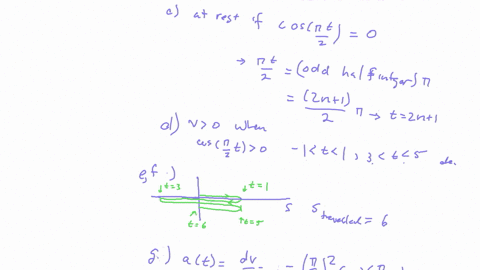 c) at rest if cos(πt/2) = 0
→ πt/2 = (odd half integer) π
= (2n+1)/2 π → t = 2n+1
d) v>0 when
cos(π/2 t)>0 -1<t<1, 3<t<5 etc.
e,f.)
↓t=3 ↓t=1
S S travelled = 6
^ t=6 ↑t=5
g.) a(t) = dv